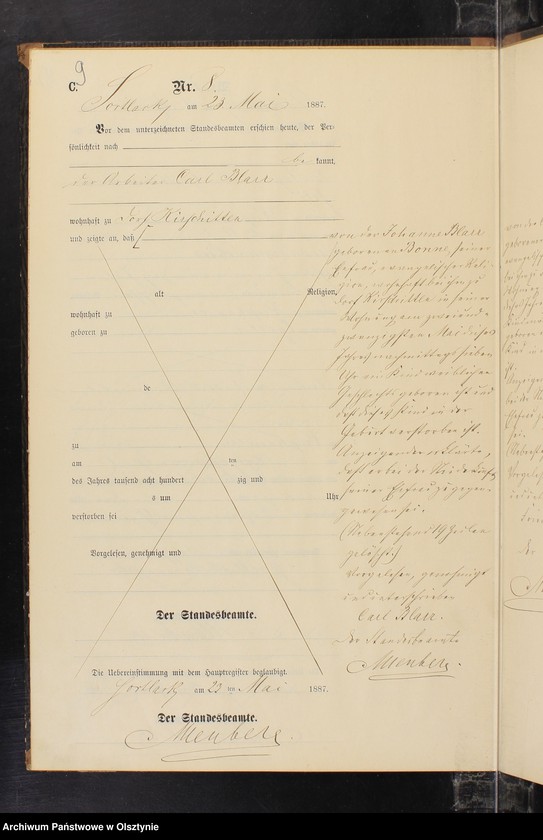 9
C.
Nr. 8.
Sortlack, am 23 Mai 1887.
Vor dem unterzeichneten Standesbeamten erschien heute, der Per-
sönlichkeit nach
be kannt,
der Arbeiter Carl Blarr
wohnhaft zu Dorf Kirschitten
und zeigte an, daß
von der Johanne Blarr
geborenen Bonne, seiner
Ehefrau, evangelischer Reli-
gion, wohnhaft bei ihm zu
Dorf Kirschitten in seiner
Wohnung am zwei und
zwanzigsten Mai dieses
Jahres nachmittags sieben
Uhr ein Kind weiblichen
Geschlechts geboren ist und
daß dieses Kind in der
Geburt verstorben ist.
Anzeigender erklärte,
daß er bei der Niederkunft
seiner Ehefrau zugegen
gewesen sei.
Nebenstehend 19 Zeilen
gelöscht
Vorgelesen, genehmigt
und unterschrieben
Carl Blarr.
Der Standesbeamte
alt Religion,
wohnhaft zu
geboren zu
de
zu
am ten
des Jahres tausend acht hundert zig und
s um Uhr
verstorben sei
Vorgelesen, genehmigt und
Der Standesbeamte.
Die Uebereinstimmung mit dem Hauptregister beglaubigt.
Sortlack am 23 ten Mai 1887.
Der Standesbeamte.
Archiwum Państwowe w Olsztynie